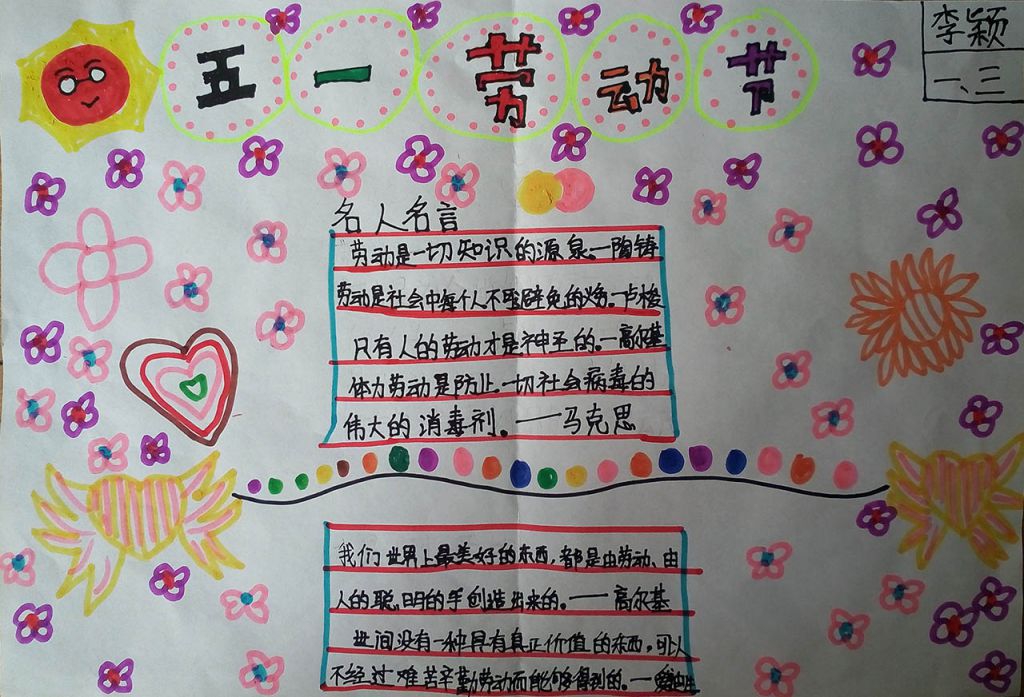 五一劳动节
李颖
一、三
名人名言
劳动是一切知识的源泉。—陶铸
劳动是社会中每个人不可避免的义务。—卢梭
只有人的劳动才是神圣的。—高尔基
体力劳动是防止一切社会病毒的
伟大的消毒剂。——马克思
我们世界上最美好的东西，都是由劳动、由
人的聪明的手创造出来的。——高尔基
世间没有一种具有真正价值的东西，可以
不经过艰苦辛勤劳动而能够得到的。—爱迪生